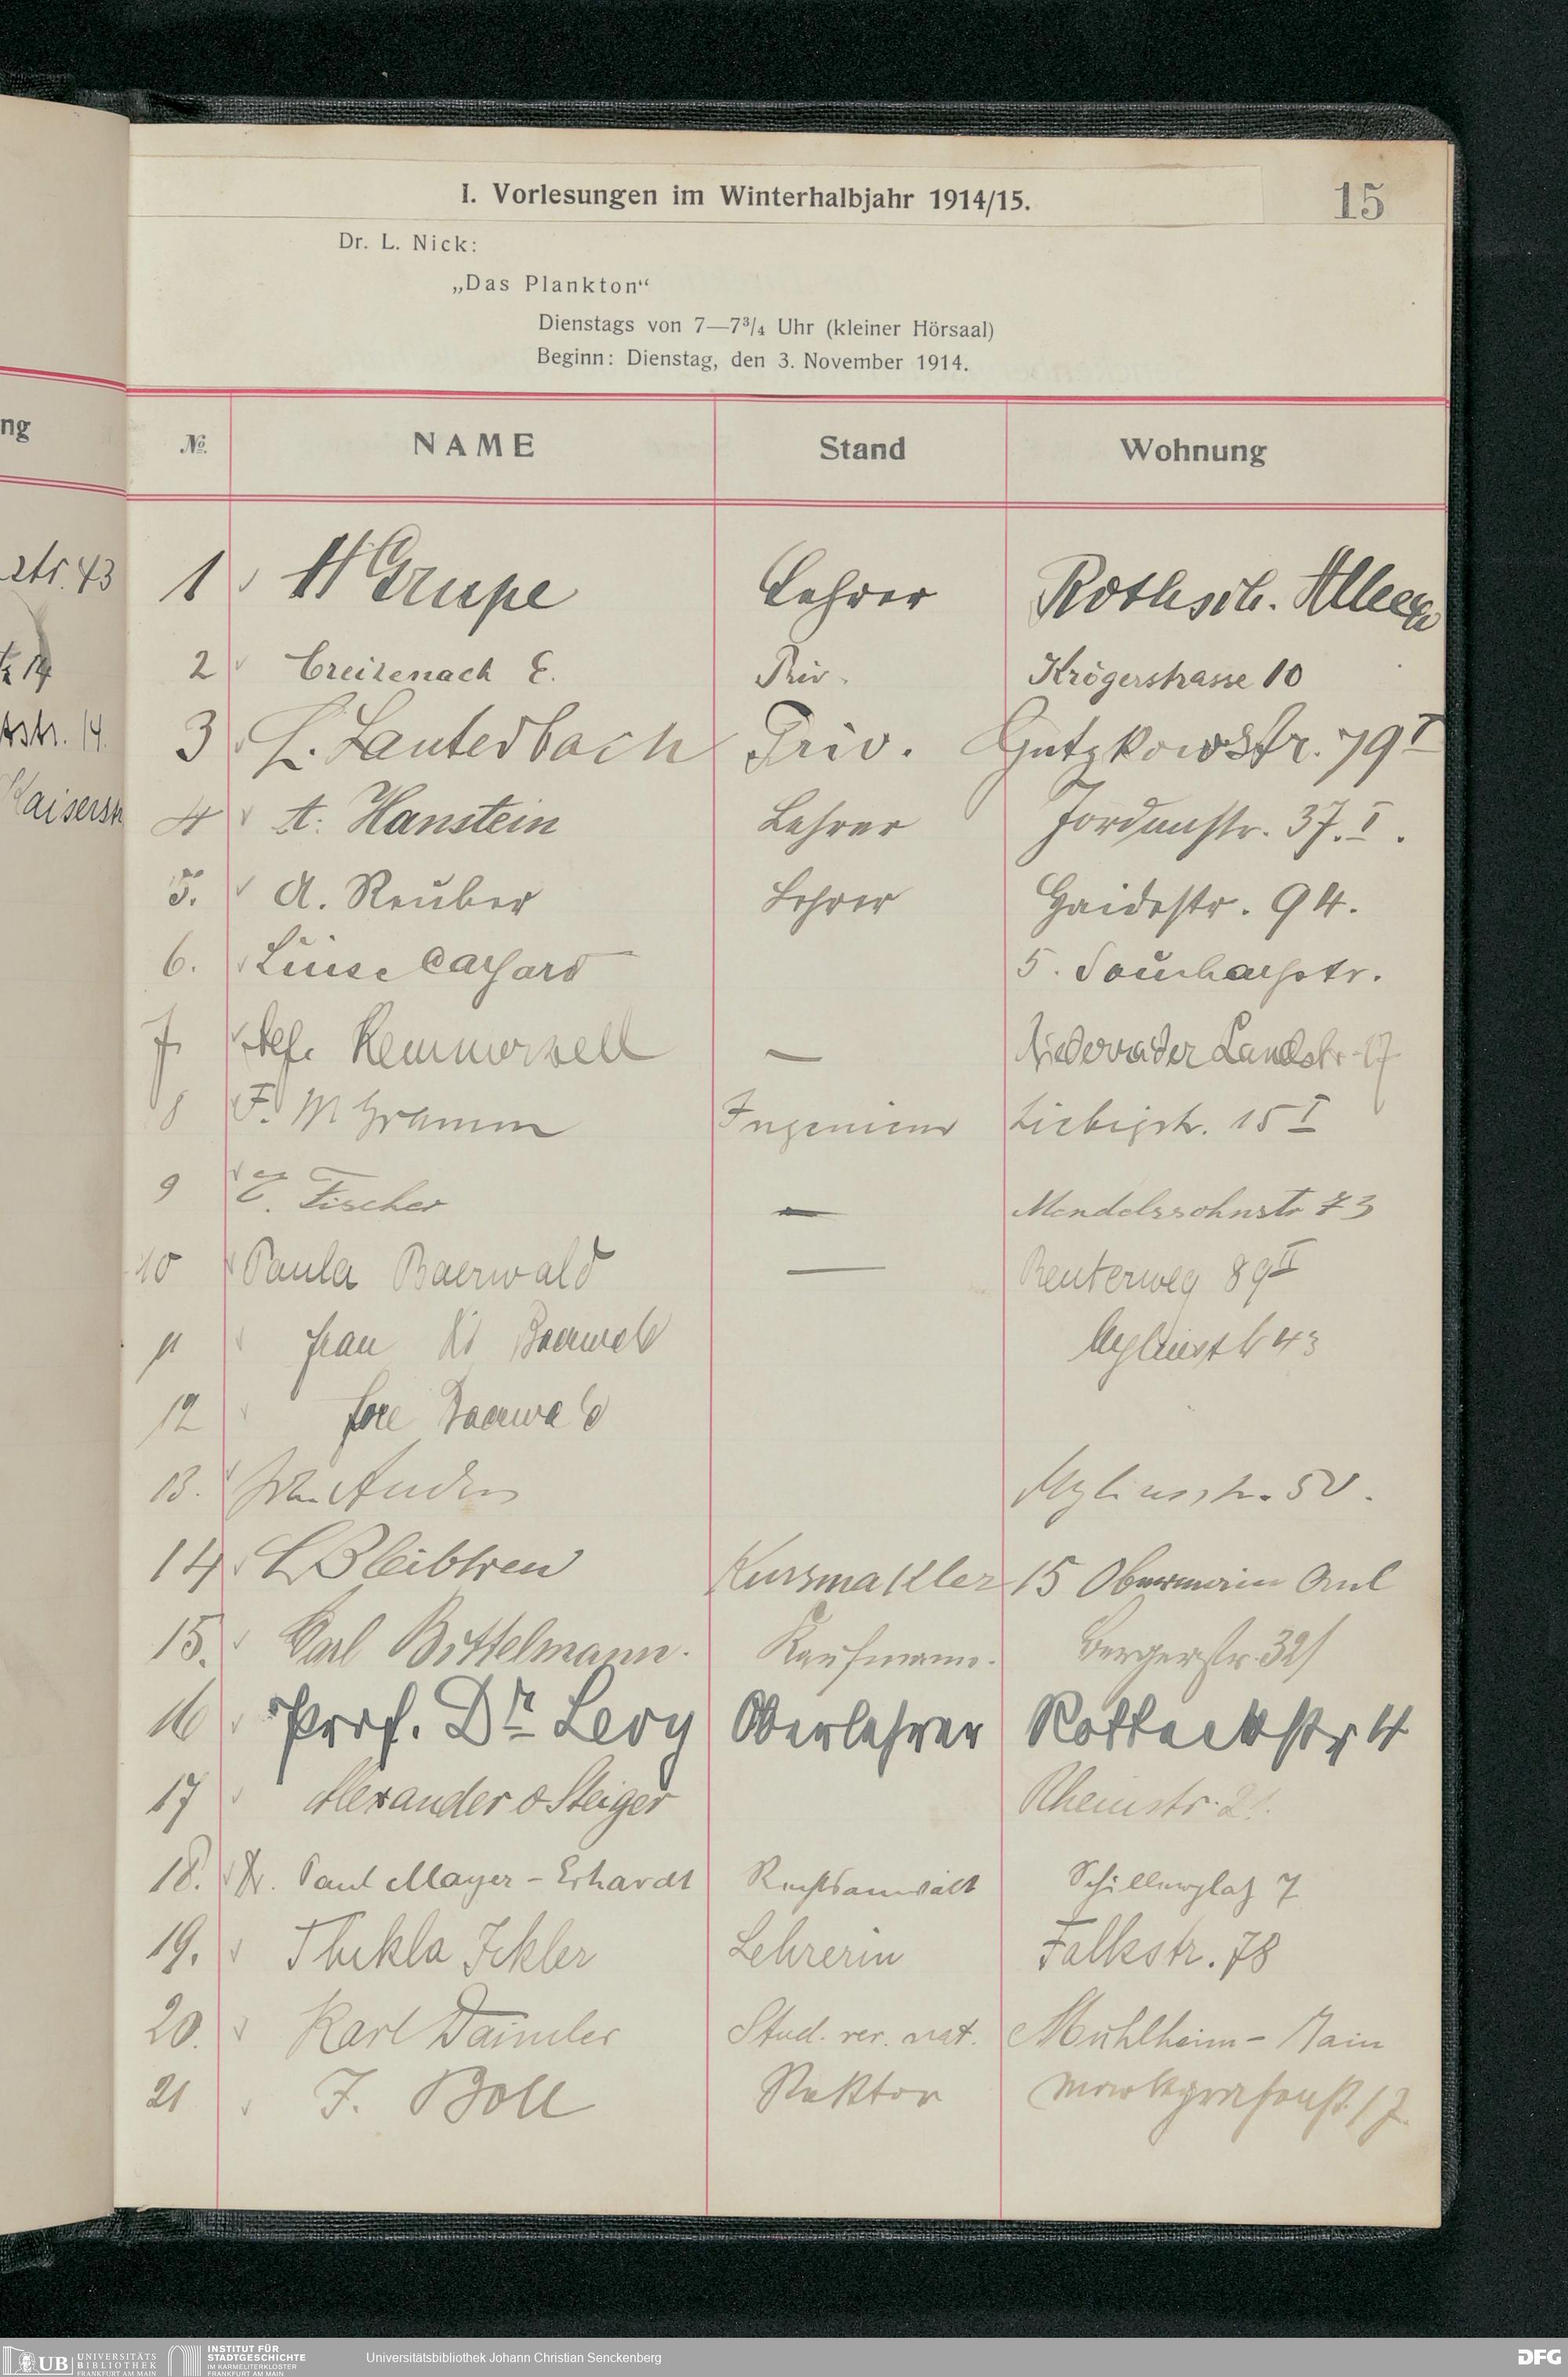 15
I. Vorlesungen im Winterhalbjahr 1914/15.
Dr. L. Nick:
„Das Plankton“
Dienstags von 7—7³/₄ Uhr (kleiner Hörsaal)
Beginn: Dienstag, den 3. November 1914.
ng
№ NAME Stand Wohnung
str. 43
1 H Grupe Lehrer Rothsch. Allee
2 Creizenach E. Priv. Krögerstrasse 10
14
3 L. Lauterbach Priv. Gutzkowstr. 79 I
str. 14.
Kaiserstr
4 A. Hanstein Lehrer Jordanstr. 37. I.
5. A. Reuber Lehrer Haidestr. 94.
6. Luise 5.
7. — Niederräder Landstr. 17
8 F. M Gramm Ingenieur Liebigstr. 15 I
9 E. Fischer — Mendelssohnstr 73
10 Paula Baerwald — Reuterweg 89 II
11 Frau Baerwald Myliusstr 43
12 Baerwald
13. Myliusstr. 50.
14 Kursmakler 15 Obermain
15. Carl Bittelmann. Kaufmann. Bergerstr. 32/
16 Prof. Dr. Levy Oberlehrer Rotteckstr 4
17 Alexander v Steiger Rheinstr. 21.
18. Dr. Paul Mayer-Erhardt Rechtsanwalt Schillerplatz 7
19. Thekla Ickler Lehrerin Falkstr. 78
20. Karl Daimler Stud. rer. nat. Mühlheim-Main
21 J. Boll Rektor Markgrafenst. 17.
UB UNIVERSITÄTS
BIBLIOTHEK
FRANKFURT AM MAIN
INSTITUT FÜR
STADTGESCHICHTE
IM KARMELITERKLOSTER
FRANKFURT AM MAIN
Universitätsbibliothek Johann Christian Senckenberg
DFG